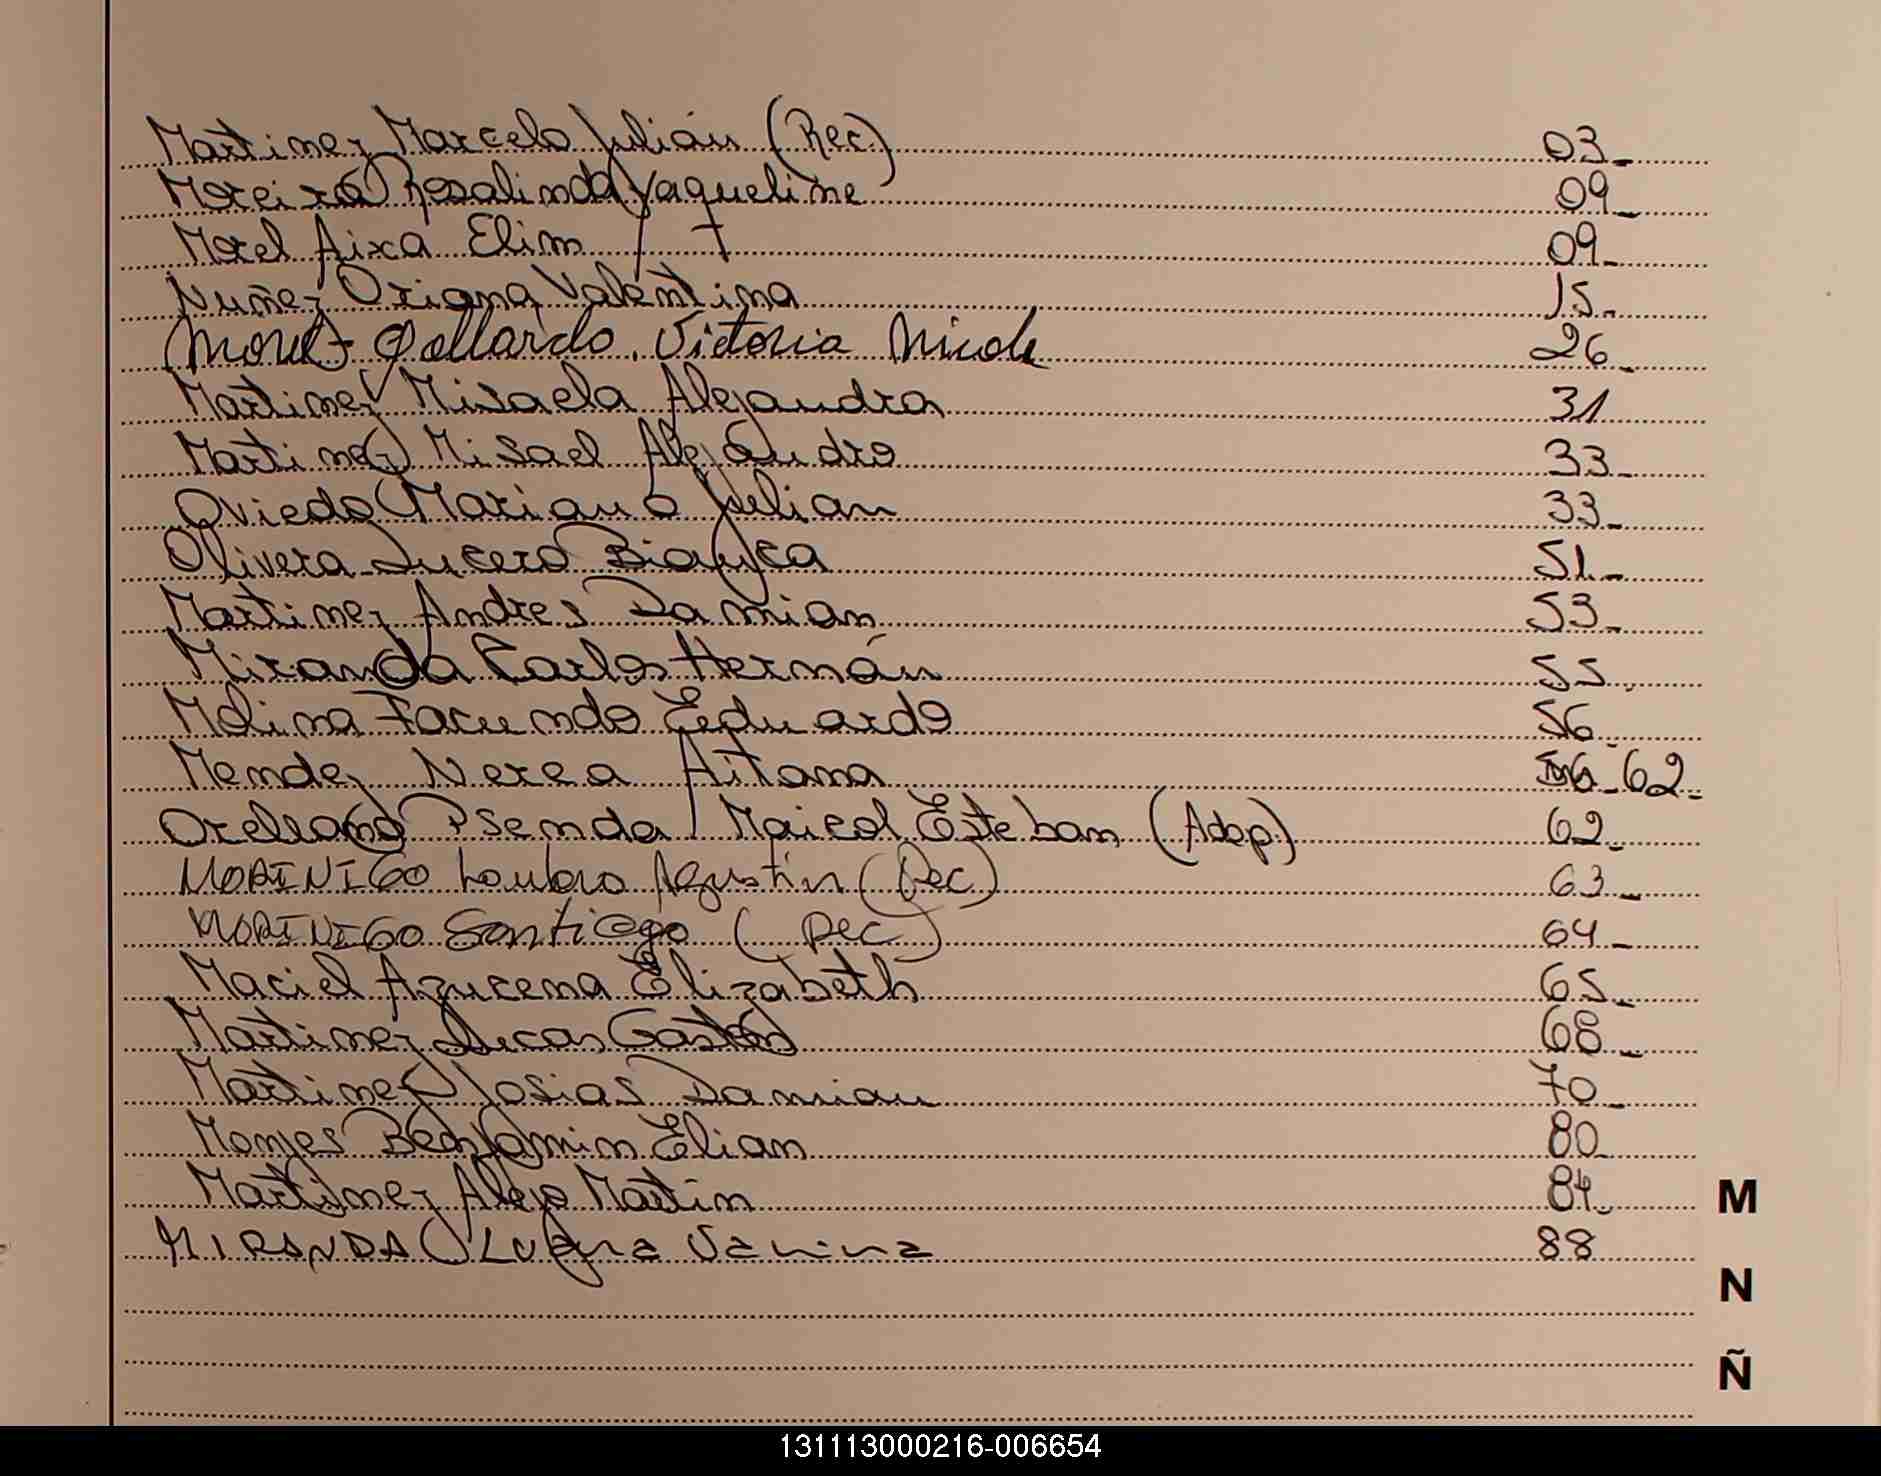 Martinez Marcelo Julián (Rec.) 03_
Moreira Rosalinda Yaqueline 09_
Morel Aixa Elim 09_
Nuñez Oriana Valentina 15_
Morel Gallardo. Victoria Nicole 26_
Martinez Misaela Alejandra 31
Martinez Misael Alejandro 33_
Oviedo Mariano Julian 33_
Olivera Lucero Bianca 51_
Martinez Andres Damian 53_
Miranda Carlos Hernán 55_
Molina Facundo Eduardo 56_
Mendez Nerea Aitana 62_
Orellana Maicol Esteban (Adop) 62_
MORINIGO Agustin (Rec) 63_
MORINIGO Santiago (Rec) 64_
Maciel Azucena Elizabeth 65_
Martinez Lucas Gastón 68_
Martinez Josias Damian 70_
Monjes Benjamin Elian 80_
Martinez Alejo Martin 84_
M
MIRANDA Vanina 88
N
Ñ
131113000216-006654